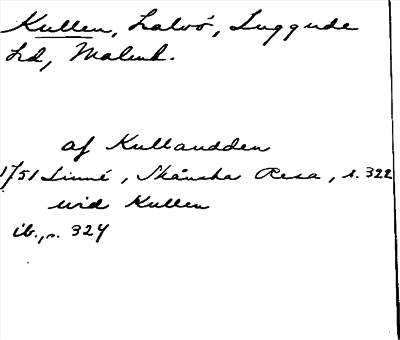 Kullen, halvö, Luggude
hd, Malmh.
af Kullaudden
1751 Linné, Skånska Resa, s. 322
wid Kullen
ib., s. 324